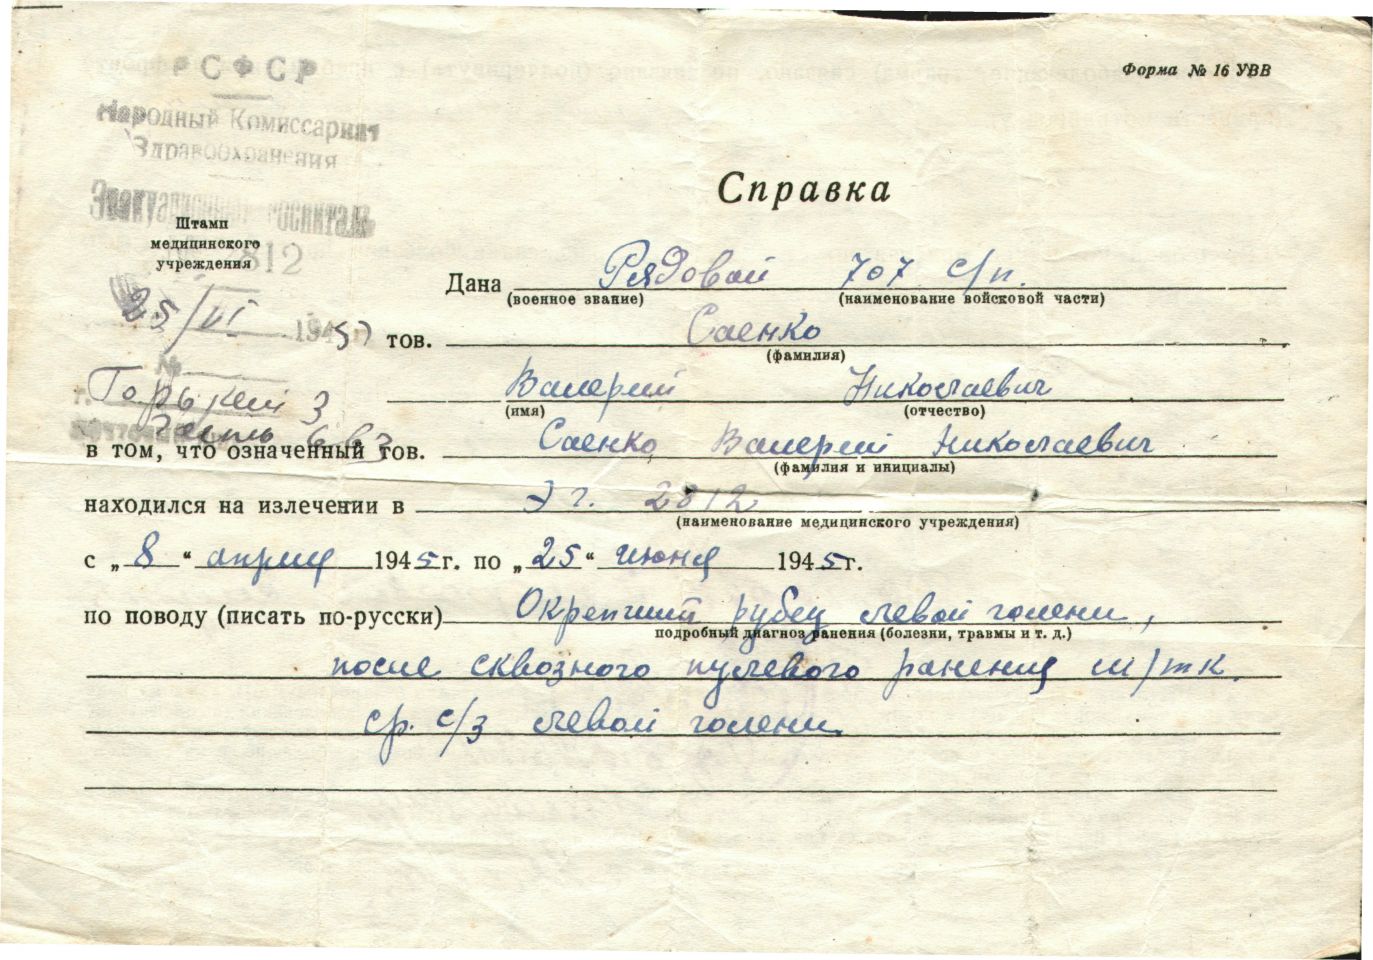 РСФСР
Форма № 16 УВВ
Народный Комиссариат
Здравоохранения
Эвакуационный госпиталь
2812
Штамп
медицинского
учреждения
25/VI 1945 г.
№
г. Горький 3
Справка
Дана Рядовой 707 с/п.
(военное звание) (наименование войсковой части)
тов. Саенко
(фамилия)
Валерий Николаевич
(имя) (отчество)
в том, что означенный тов. Саенко Валерий Николаевич
(фамилия и инициалы)
находился на излечении в Эг. 2812
(наименование медицинского учреждения)
с „8“ апреля 1945 г. по „25“ июня 1945 г.
по поводу (писать по-русски) Окрепший рубец левой голени,
подробный диагноз ранения (болезни, травмы и т. д.)
после сквозного пулевого ранения м/тк.
ср. с/3 левой голени.